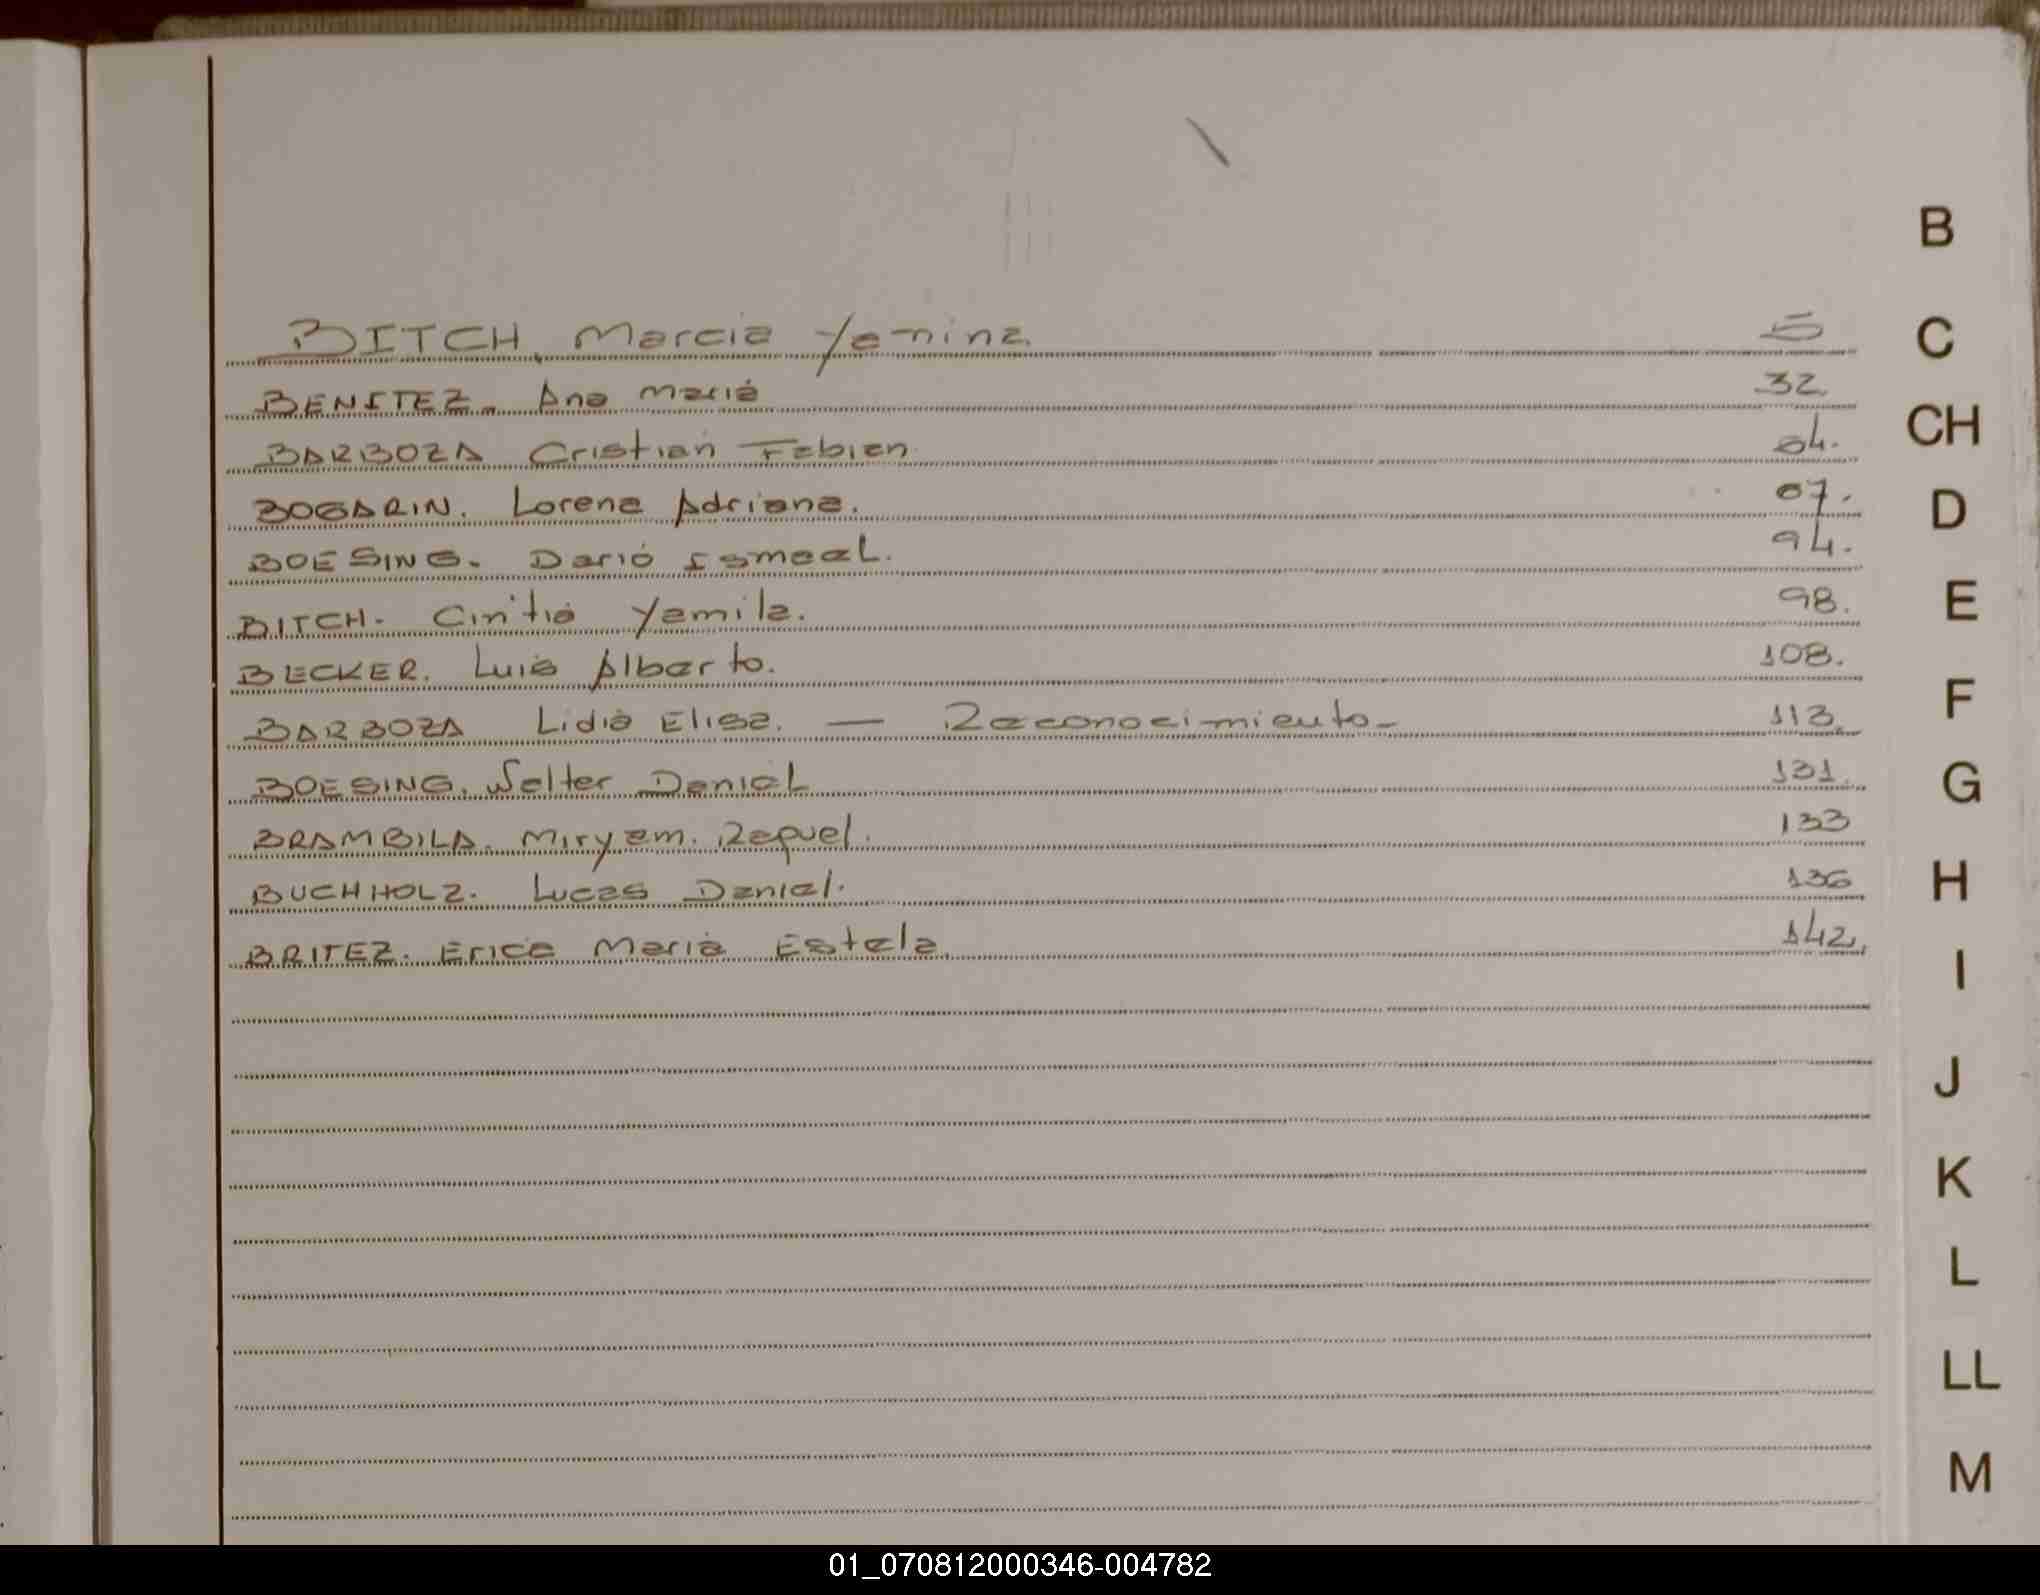 B
BITCH, Marcia Yanina. 5
C
BENITEZ. Ana Maria 32
BARBOZA Cristian Fabian. 64.
CH
BOGARIN. Lorena Adriana. 67.
D
BOESING. Dario Ismael. 94.
BITCH. Cintia Yamila. 98.
E
BECKER. Luis Alberto. 108.
F
BARBOZA Lidia Elisa. — Reconocimiento- 113.
BOESING. Walter Daniel 131.
G
BRAMBILA. Miryam. Raquel. 133
BUCHHOLZ. Lucas Daniel. 136
H
BRITEZ. Erica Maria Estela. 142.
I
J
K
L
LL
M
01_070812000346-004782